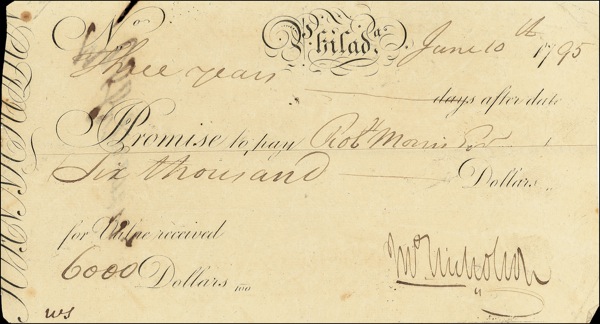 No. Philada. June 10th 1795
Three years days after date
I Promise to pay Robt Morris Esqr
Six thousand Dollars
for Value received
6000 Dollars 100
Jno Nicholson
WS